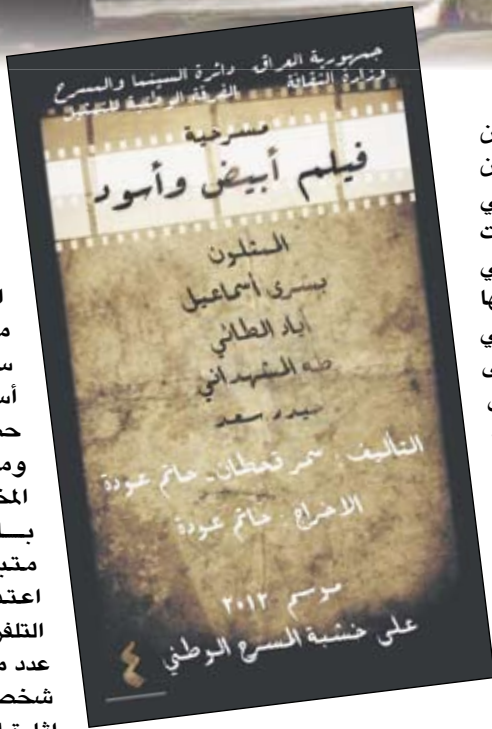 جمهورية العراق دائرة السينما والمسرح
وزارة الثقافة الفرقة الوطنية للتمثيل
مسرحية
فيلم أبيض وأسود
الممثلون
بشرى أسماعيل
أياد الطائي
طه المشهداني
حيدر سعد
التأليف : سمر قحطان - حاتم عودة
الاخراج : حاتم عودة
موسم ٢٠١٢
على خشبة المسرح الوطني
٤
عدد